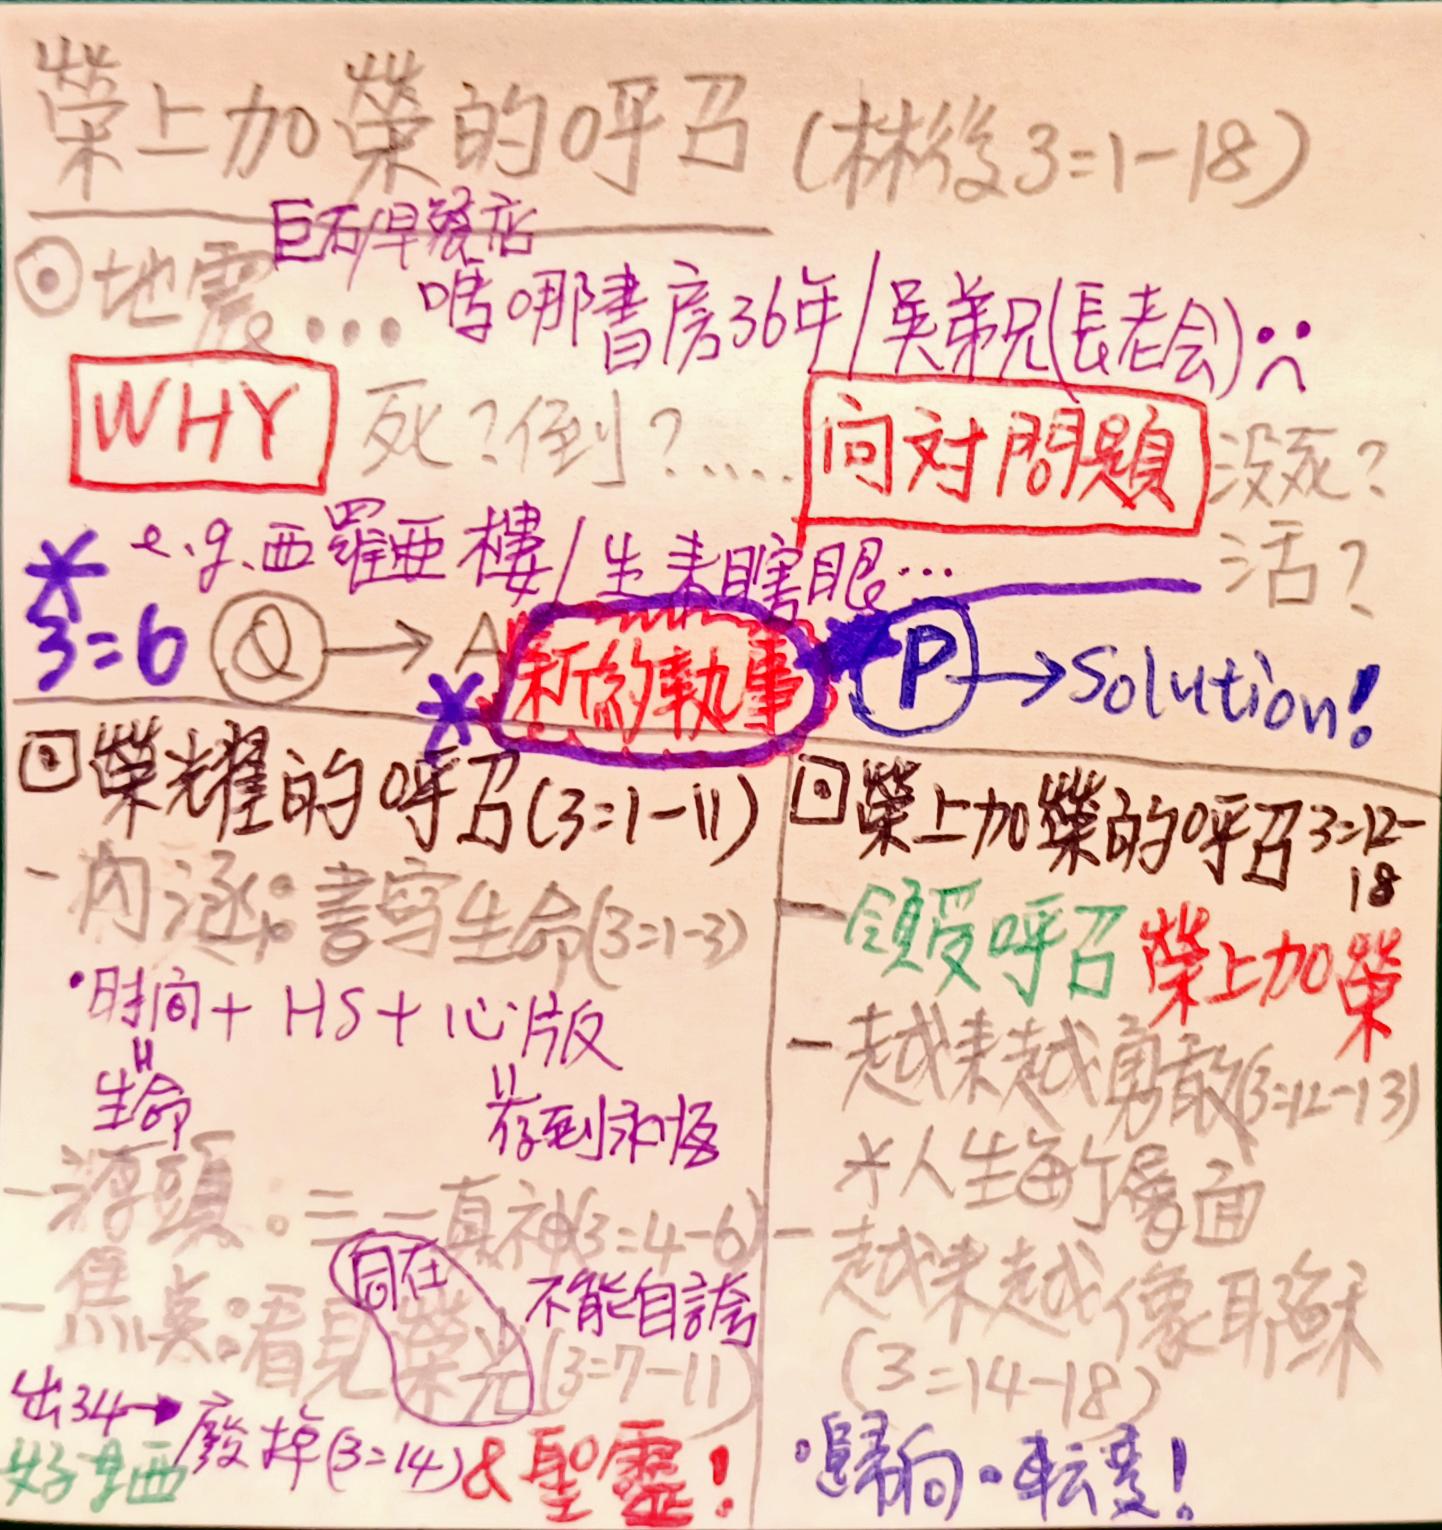 榮上加榮的呼召 (林後3=1-18)
巨石/早餐店
地震... 嗎哪書房36年/吳弟兄(長老会)
WHY 死?倒?..... 问对問題 没死?
活?
* e.g.西羅亞樓/生来瞎眼...
3=6 Q → A 新约執事 P → Solution!
*
榮耀的呼召(3=1-11)
-内涵:書寫生命(3=1-3)
·时间+HS+心版
=
生命
=
存到永恆
-源頭:三一真神(3=4-6)
同在
不能自誇
-焦点:看見榮光(3=7-11)
出34→廢掉(3=14)&聖靈!
好東西
榮上加榮的呼召3=12-
18
-領受呼召 榮上加榮
-越来越勇敢(3=12-13)
*人生每个層面
-越来越像耶穌
(3=14-18)
·歸向·転变!